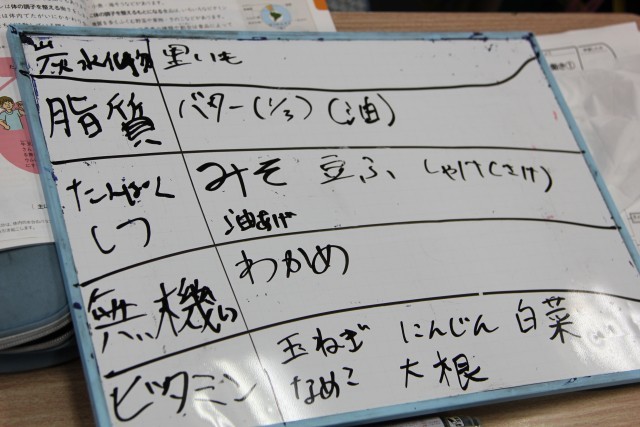 炭水化物 里いも
脂質 バター(1/3) (油)
たんぱくしつ みそ 豆ふ しゃけ(さけ)
油あげ
無機い わかめ
ビタミン 玉ねぎ にんじん 白菜
なめこ 大根